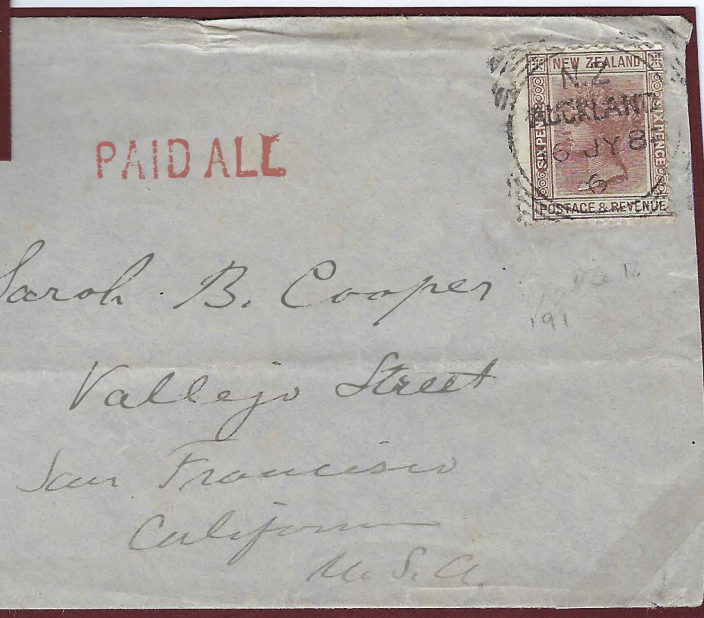 NEW ZEALAND
SIXPENCE
SIXPENCE
POSTAGE & REVENUE
N.Z
AUCKLAND
JY 8
6
PAID ALL
Sarah B. Cooper
Vallejo Street
San Francisco
California
U.S.A.